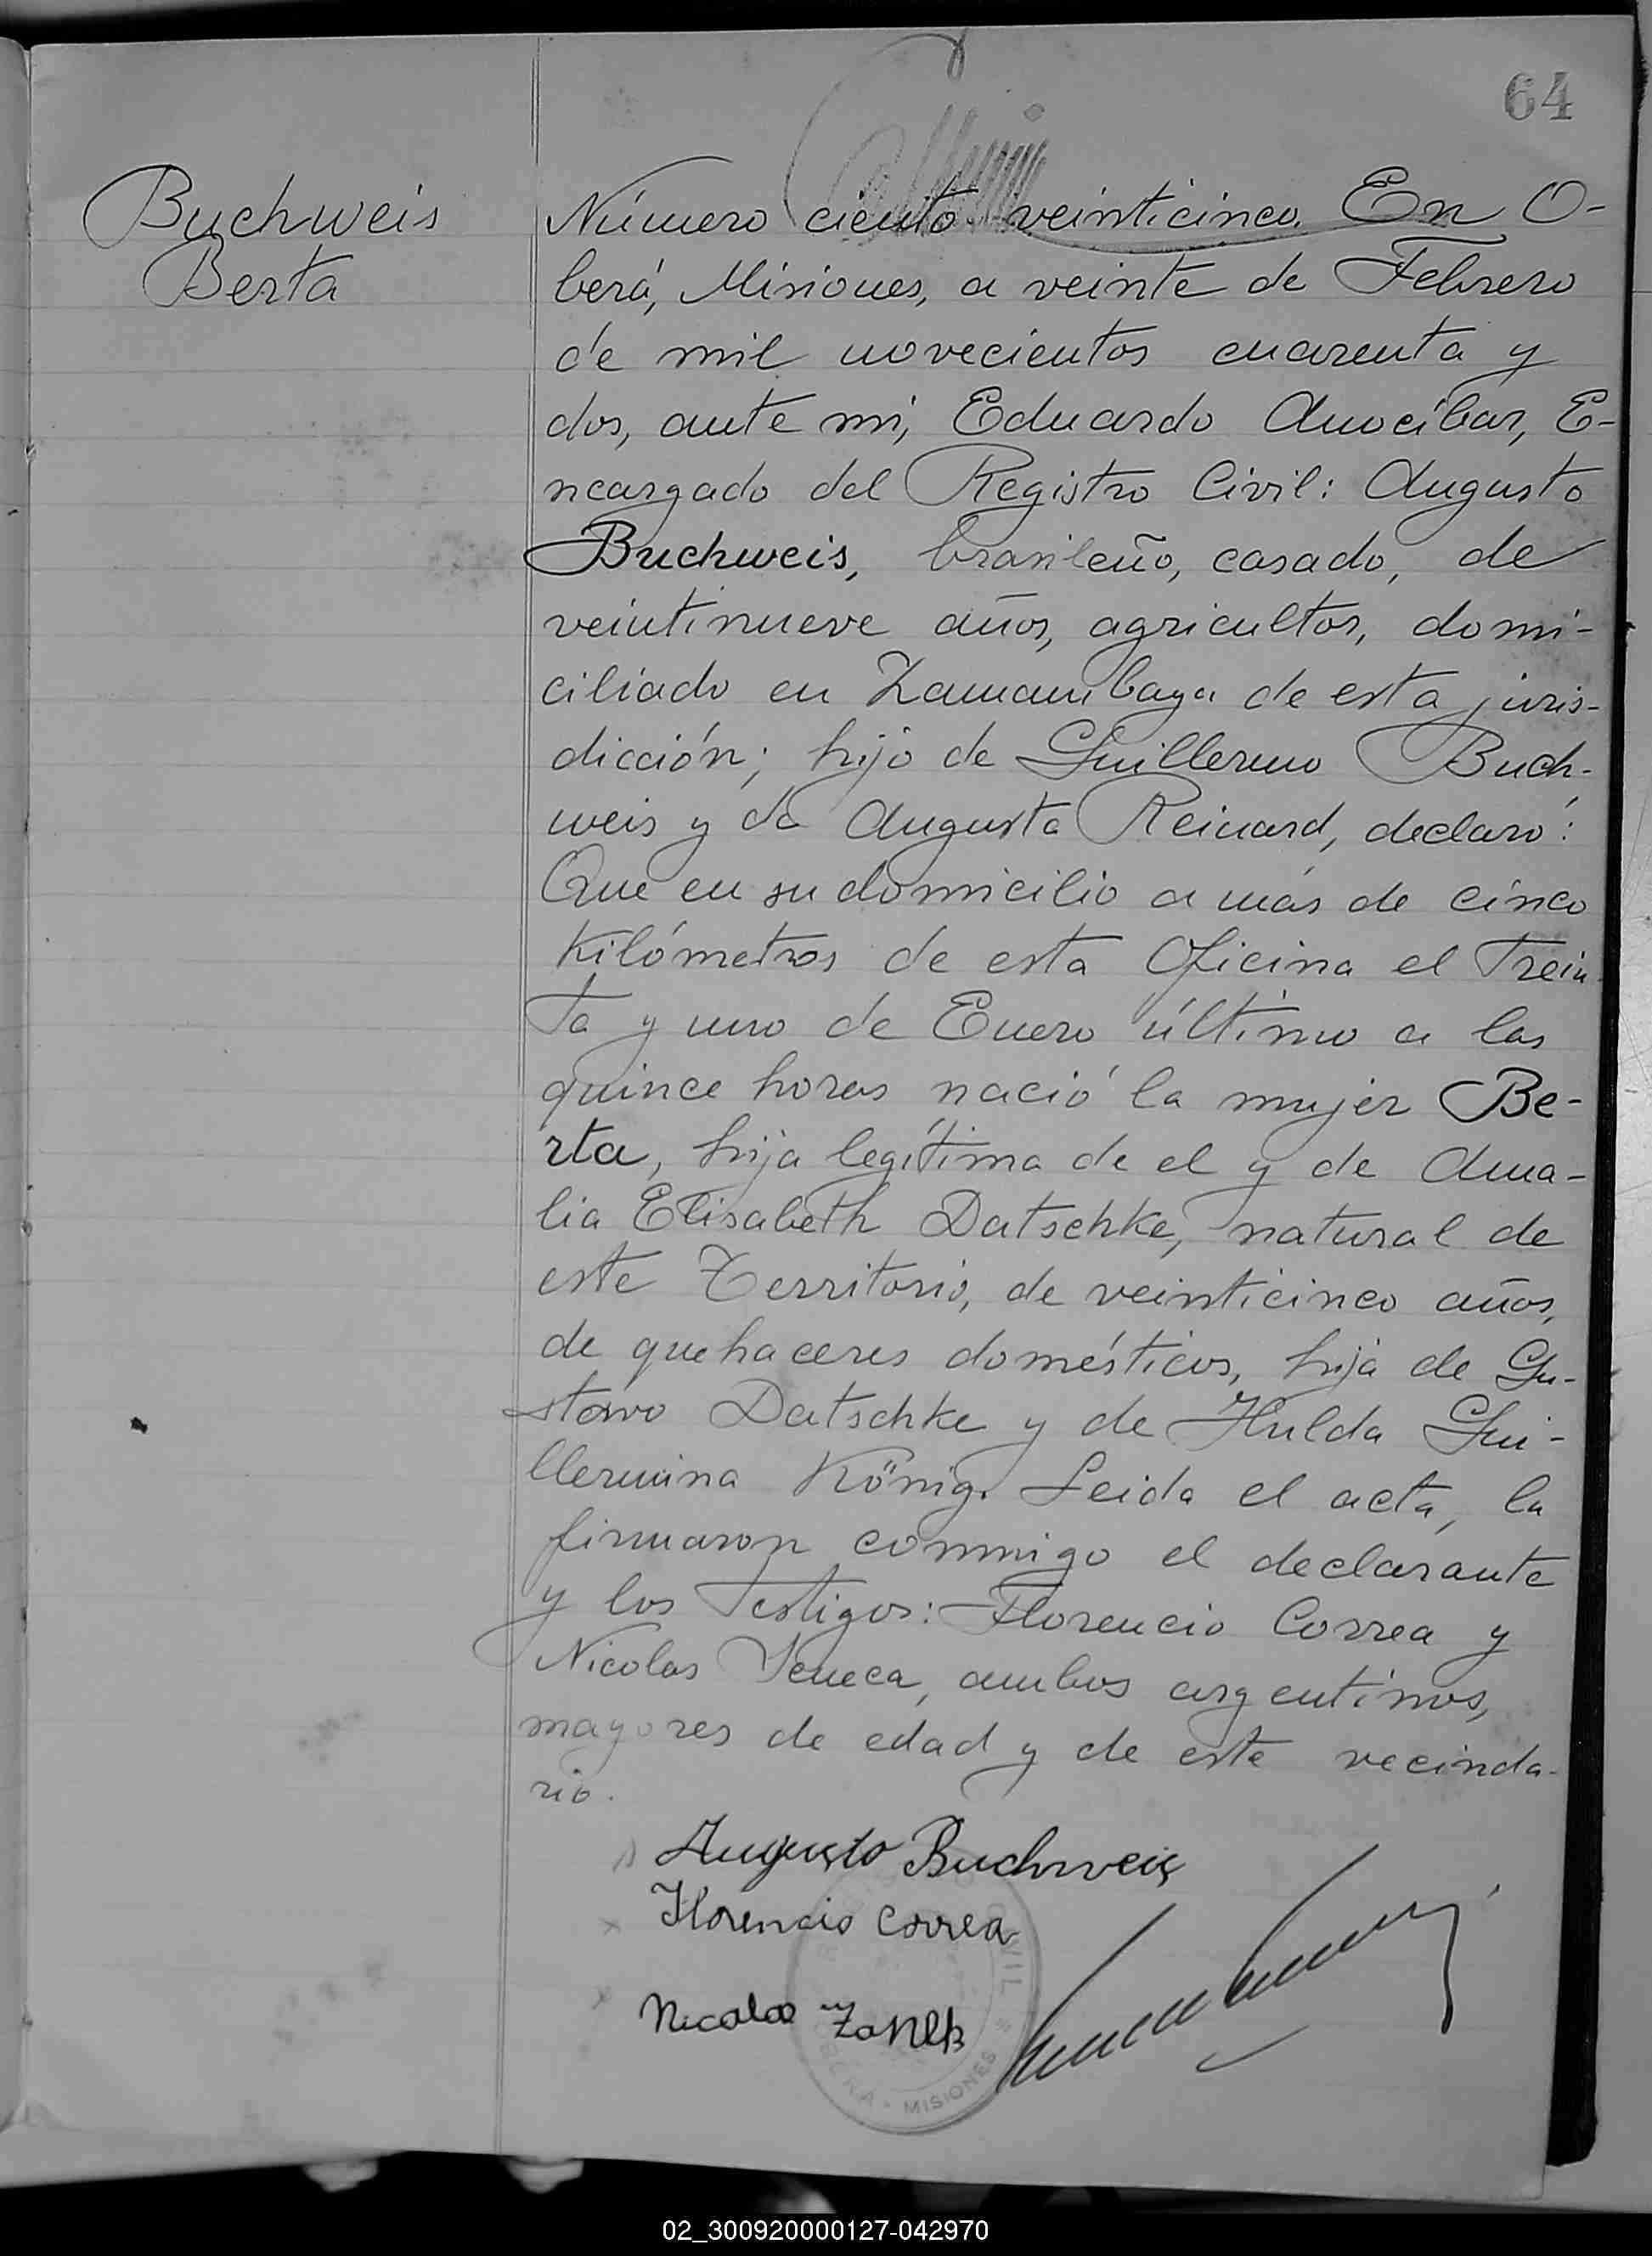 64
Buchweis
Berta
Número ciento veinticinco. En O-
berá, Misiones, a veinte de Febrero
de mil novecientos cuarenta y
dos, ante mi, Eduardo Anocibar, E-
ncargado del Registro Civil: Augusto
Buchweis, brasileño, casado, de
veintinueve años, agricultor, domi-
ciliado en Zamambaya de esta juris-
dicción; hijo de Guillermo Buch-
weis y de Augusta Reinard, declaró:
Que en su domicilio a más de cinco
Kilómetros de esta Oficina el Trein
ta y uno de Enero último a las
quince horas nació la mujer Be-
rta, hija legítima de el y de Ama-
lia Elisabeth Datschke, natural de
este Territorio, de veinticinco años,
de quehaceres domésticos, hija de Gu-
stavo Datschke y de Hulda Gui-
llermina König. Leida el acta, la
firmaron conmigo el declarante
y los Testigos: Florencio Correa y
Nicolas Seneca, ambos argentinos,
mayores de edad y de este vecinda-
rio.
Augusto Buchweis
Florencio Correa
Nicolas
CIVIL
OBERA - MISIONES
02_300920000127-042970